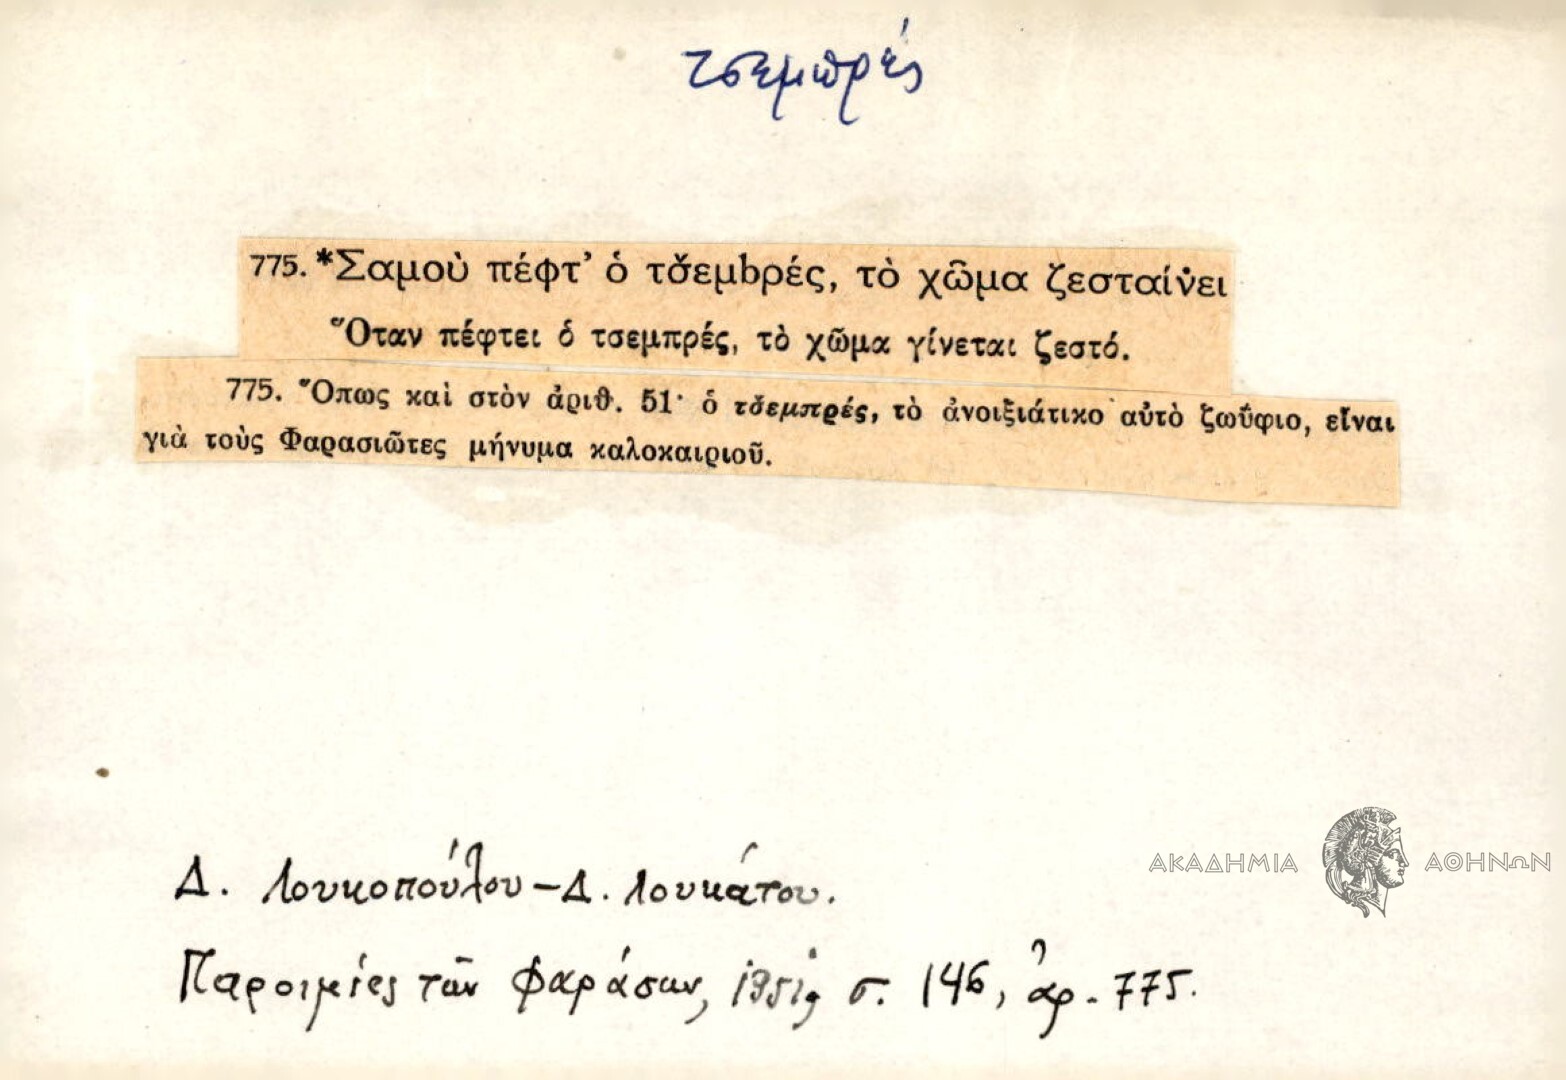 τσεμπρές
775. *Σαμοὺ πέφτ’ ὁ τσ̌εμbρές, τὸ χῶμα ζεσταίν̇ει
Ὅταν πέφτει ὁ τσεμπρές, τὸ χῶμα γίνεται ζεστό.
775. Ὅπως καὶ στὸν ἀριθ. 51· ὁ τσ̌εμπρές, τὸ ἀνοιξιάτικο αὐτὸ ζωΰφιο, εἶναι
γιὰ τοὺς Φαρασιῶτες μήνυμα καλοκαιριοῦ.
ΑΚΑΔΗΜΙΑ ΑΘΗΝΩΝ
Δ. Λουκοπούλου – Δ. Λουκάτου.
Παροιμίες τῶν Φαράσων, 1951, σ. 146, ἀρ. 775.